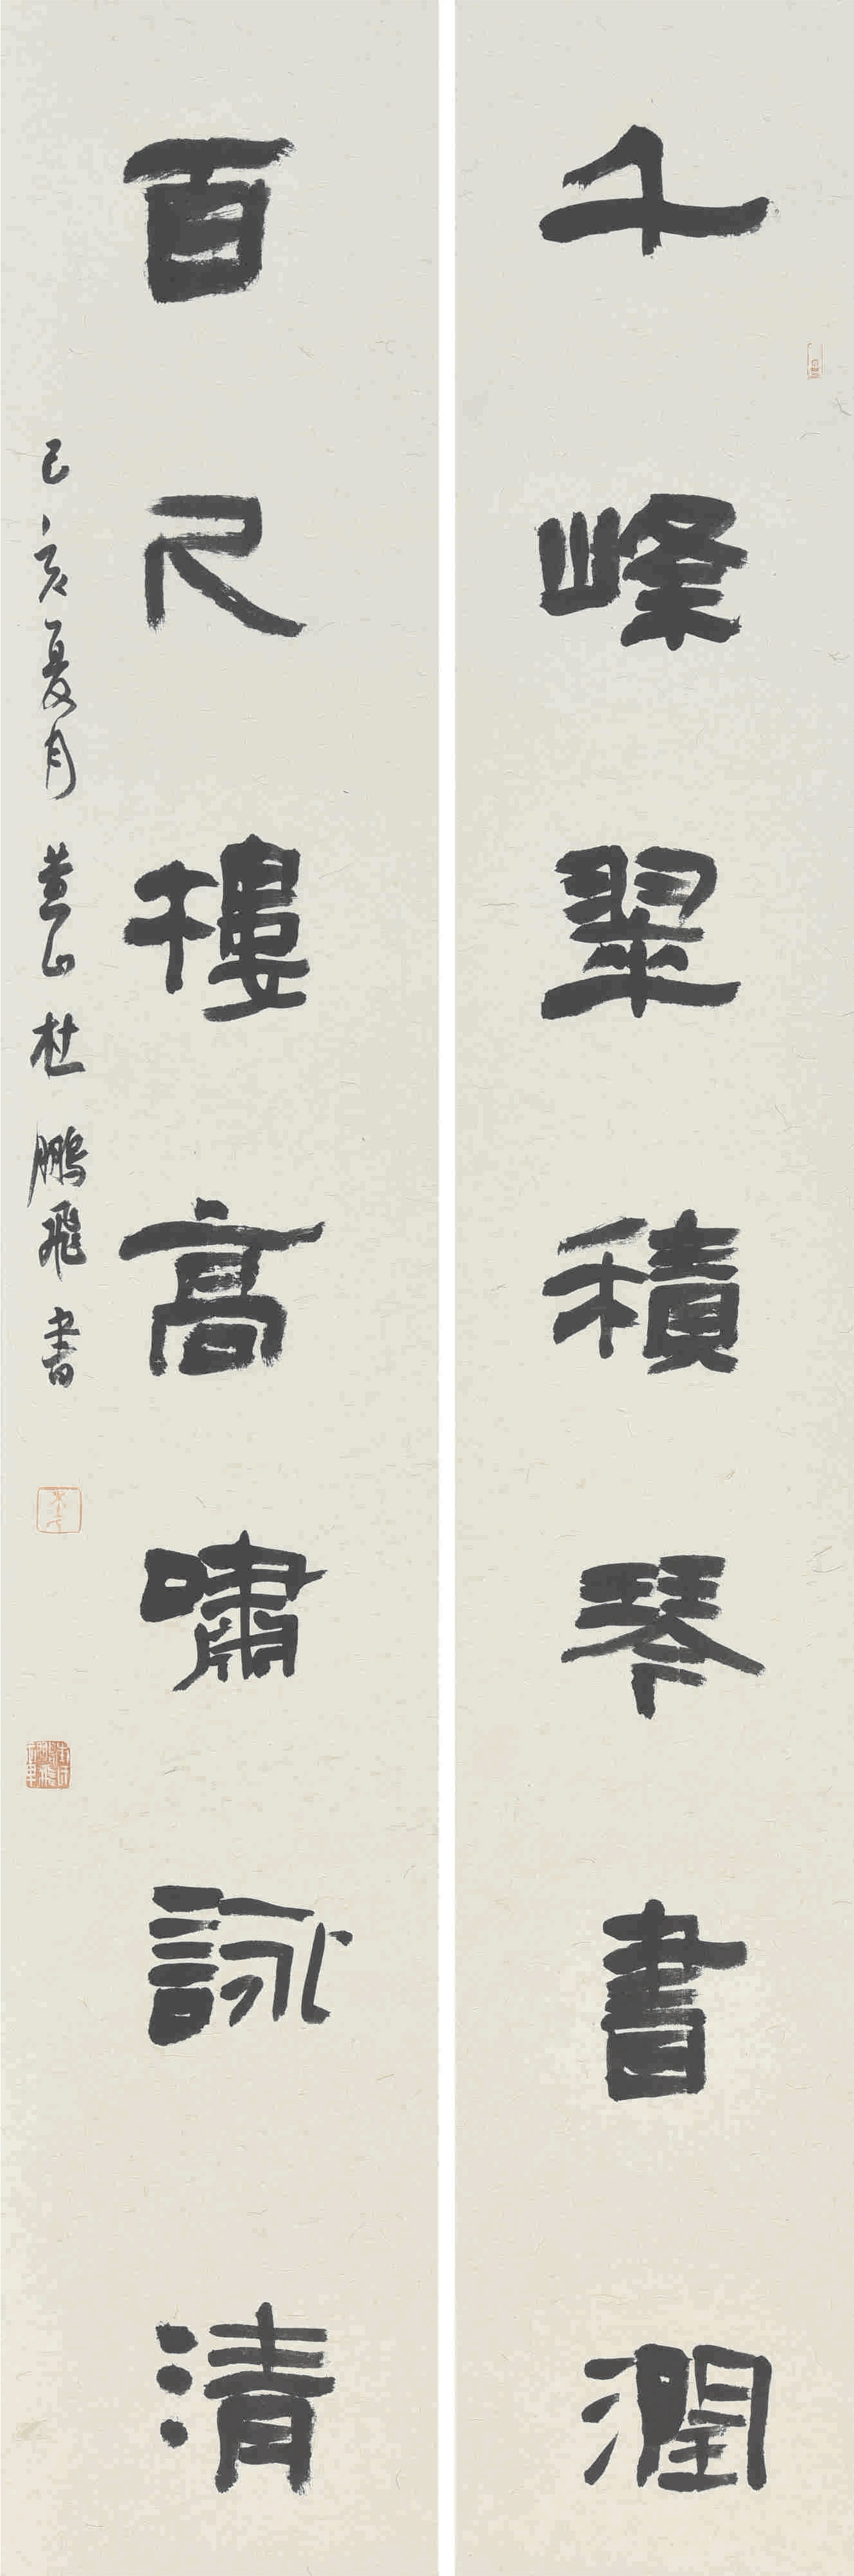 千峰翠積琴書潤
百尺樓高嘯詠清
己亥夏月黃山杜鵬飛書